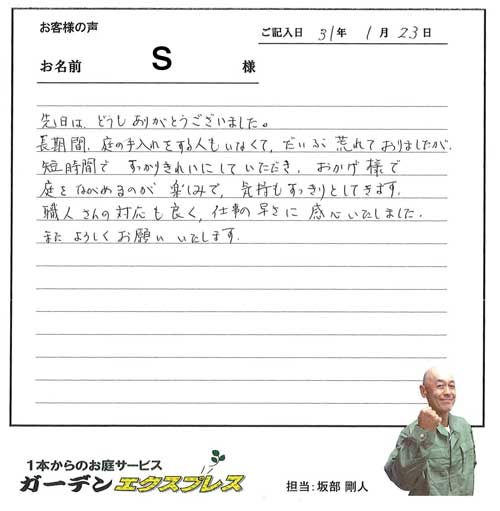 お客様の声
ご記入日 31年 1月 23日
お名前 S 様
先日は、どうもありがとうございました。
長期間、庭の手入れをする人もいなくて、だいぶ荒れておりましたが、
短時間で すっかりきれいにしていただき、おかげ様で
庭をながめるのが 楽しみで、気持もすっきりとしてきます。
職人さんの対応も良く、仕事の早さに 感心いたしました。
また よろしくお願いいたします。
1本からのお庭サービス
ガーデンエクスプレス
担当:坂部 剛人